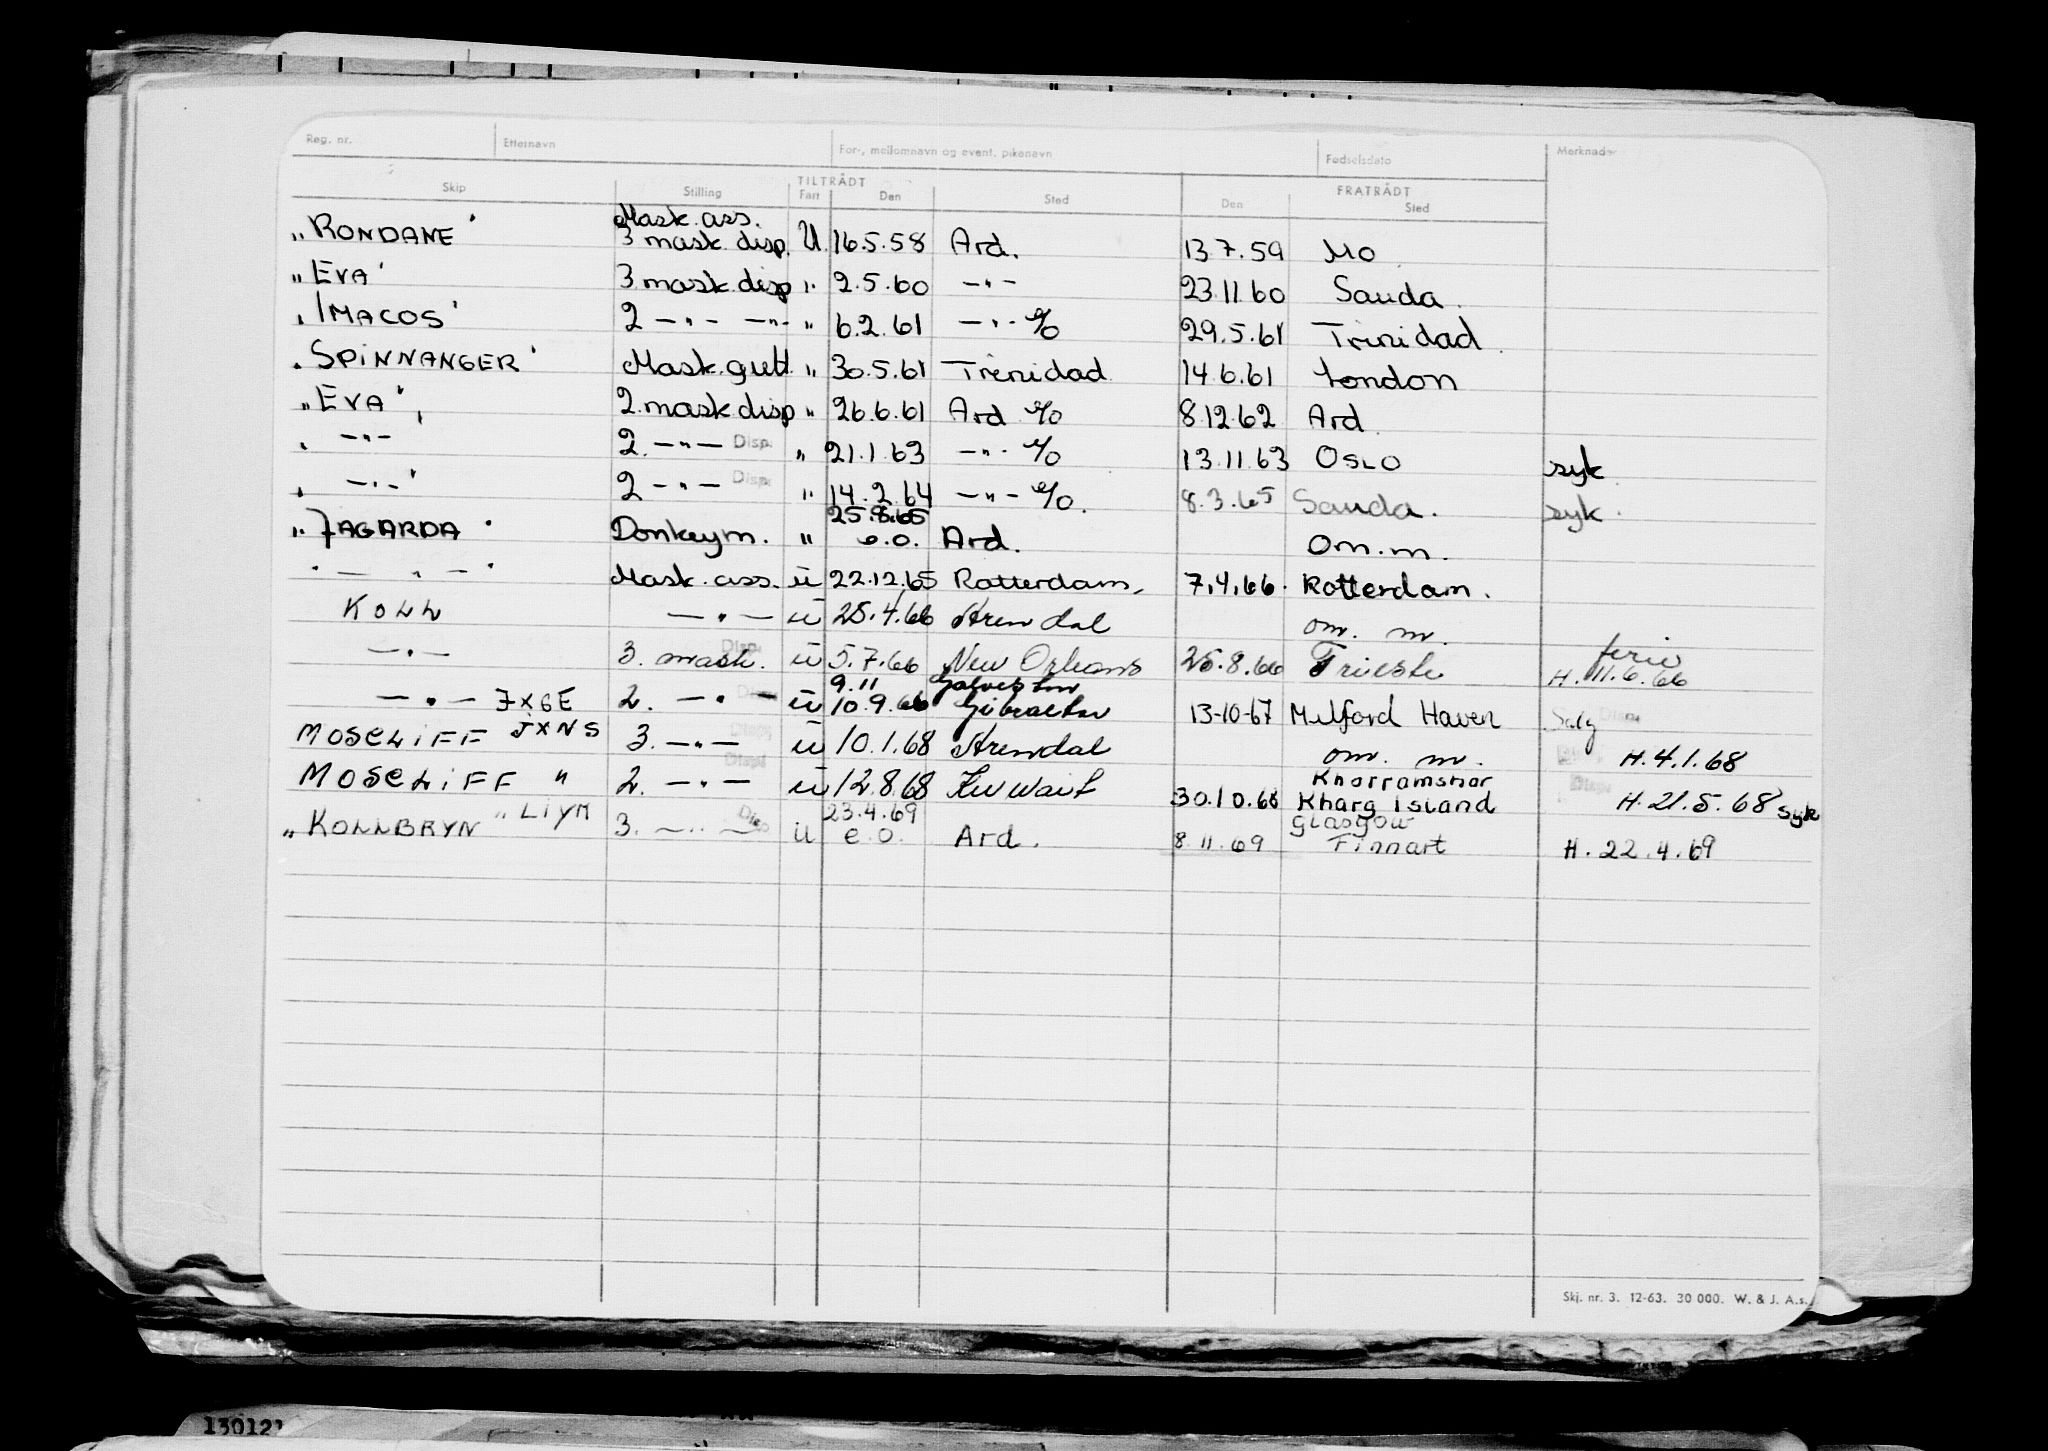 Reg. nr. Etternavn For-, mellomnavn og event. pikenavn Fødselsdato Merknader
TILTRÅDT FRATRÅDT
Skip Stilling Fart Den Sted Den Sted
Mask. ass.
„RONDANE" 3 mask. disp. U. 16.5.58 Ard. 13.7.59 Mo
„EVA" 3 mask. disp " 2.5.60 —"— 23.11.60 Sauda.
„IMACOS" 2 —"— —"— " 6.2.61 —"— 29.5.61 Trinidad.
„SPINNANGER" Mask. " 30.5.61 Trinidad 14.6.61 London
„EVA" 2. mask disp " 26.6.61 Ard 8.12.62 Ard.
„ —"— 2. —"— Disp. " 21.1.63 —"— 13.11.63 OSLO syk
„ —"—" 2 —"— Disp. " 14.2.64 —"— 8.3.65 Sauda. syk.
25.8.65
„JAGARDA" Donkeym. " e.o. Ard. Om. m.
" — " — " Mask. ass. ü 22.12.65 Rotterdam, 7.4.66. Rotterdam.
KOLL —"— ü 25.4.66 Arendal om. m.
—"— 3. mask. Disp. ü 5.7.66 New Orleans 25.8.66 Trieste ferie
H. 11.6.66
9.11 Galveston
—"— JXGE 2. —"— ü 10.9.66 Gibraltar 13-10-67 Milford Haven Salg Disp.
MOSCLIFF JXNS 3. —"— Disp. ü 10.1.68 Arendal om. m. H. 4.1.68
MOSCLIFF " 2. —"— Disp. ü 12.8.68 Kuwait 30.10.68 Khorramshar
Kharg Island Disp. H. 21.5.68 syk
23.4.69 Glasgow
„KOLLBRYN" LIYM 3. —"— Disp ü e.o. Ard. 8.11.69 Finnart H. 22.4.69
Skj. nr. 3. 12-63. 30 000. W. & J. A.s.
130121